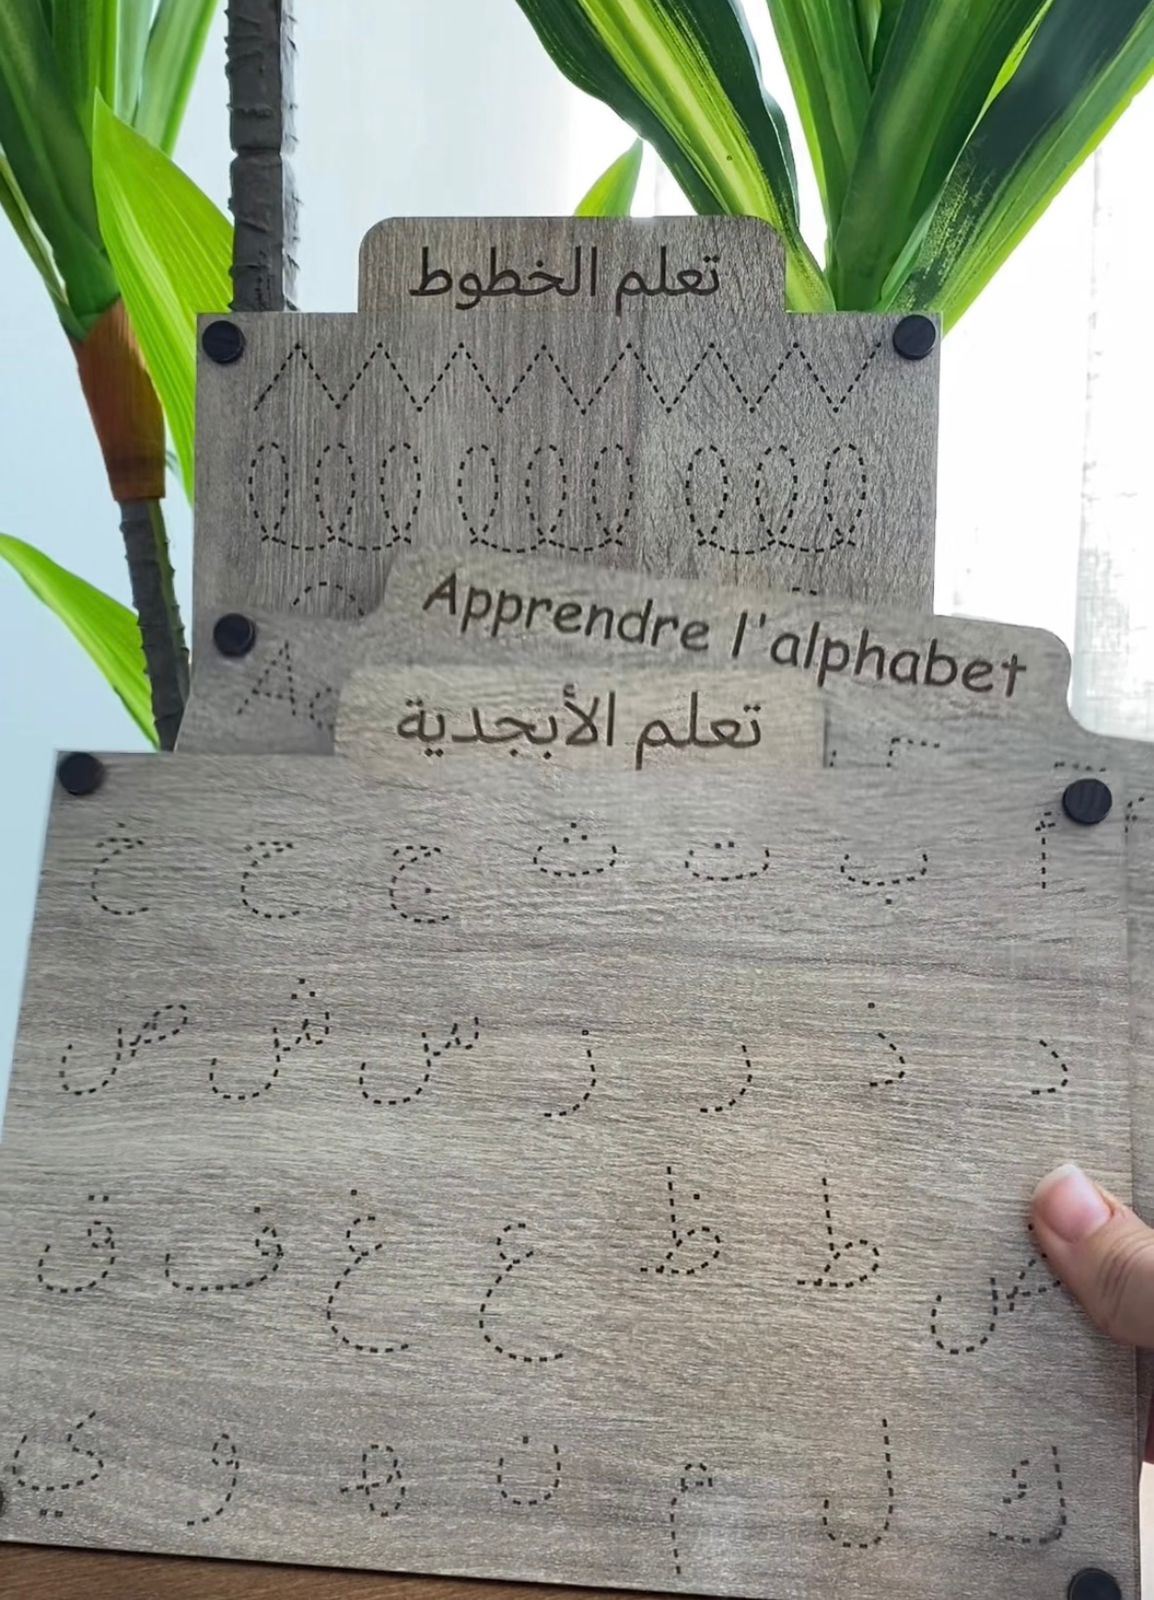 تعلم الخطوط
Apprendre l'alphabet
Aa
تعلم الأبجدية
أ ب ت ث ج ح خ
د ذ ر ز س ش ص
ض ط ظ ع غ ف ق
ك ل م ن ه و ي